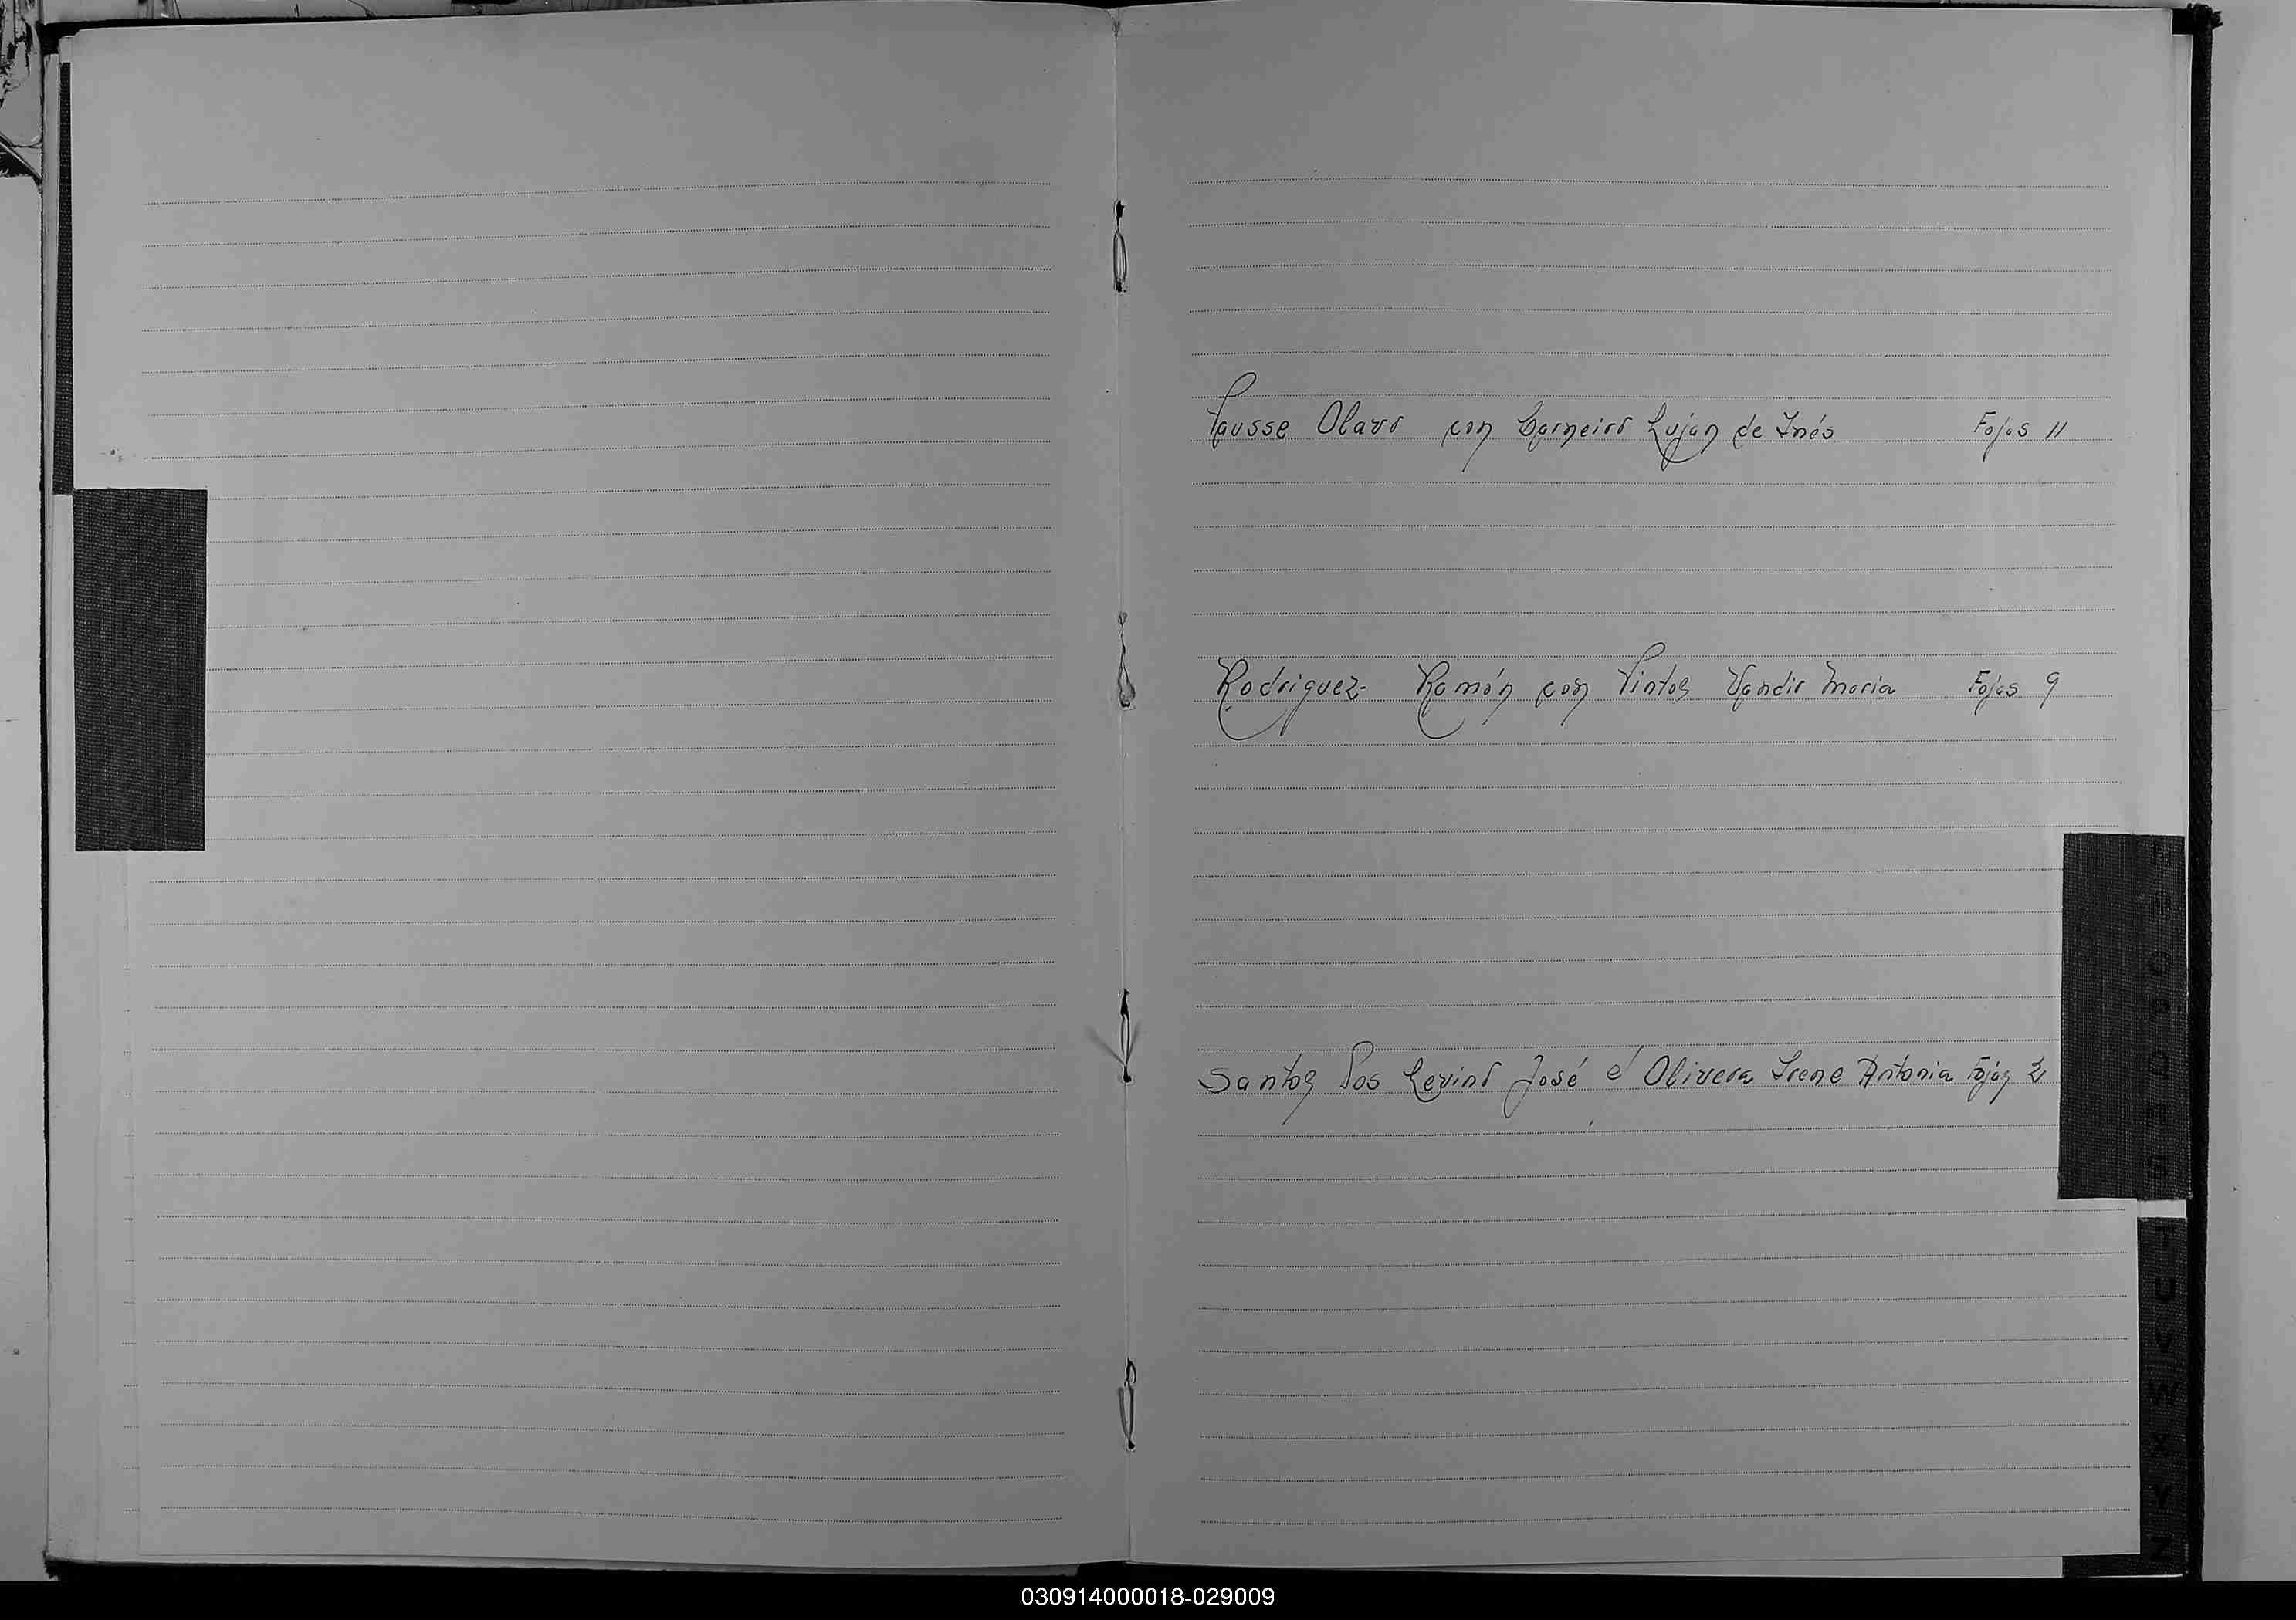 Pausse Olavo con Carneiro Luján de Inés Fojas 11
Rodriguez- Ramón con Pintos Vandir Maria Fojas 9
Santos Dos Levino José c/ Olivera Irene Antonia Fojas 2
O
P
Q
R
S
T
U
V
W
X
Y
Z
030914000018-029009